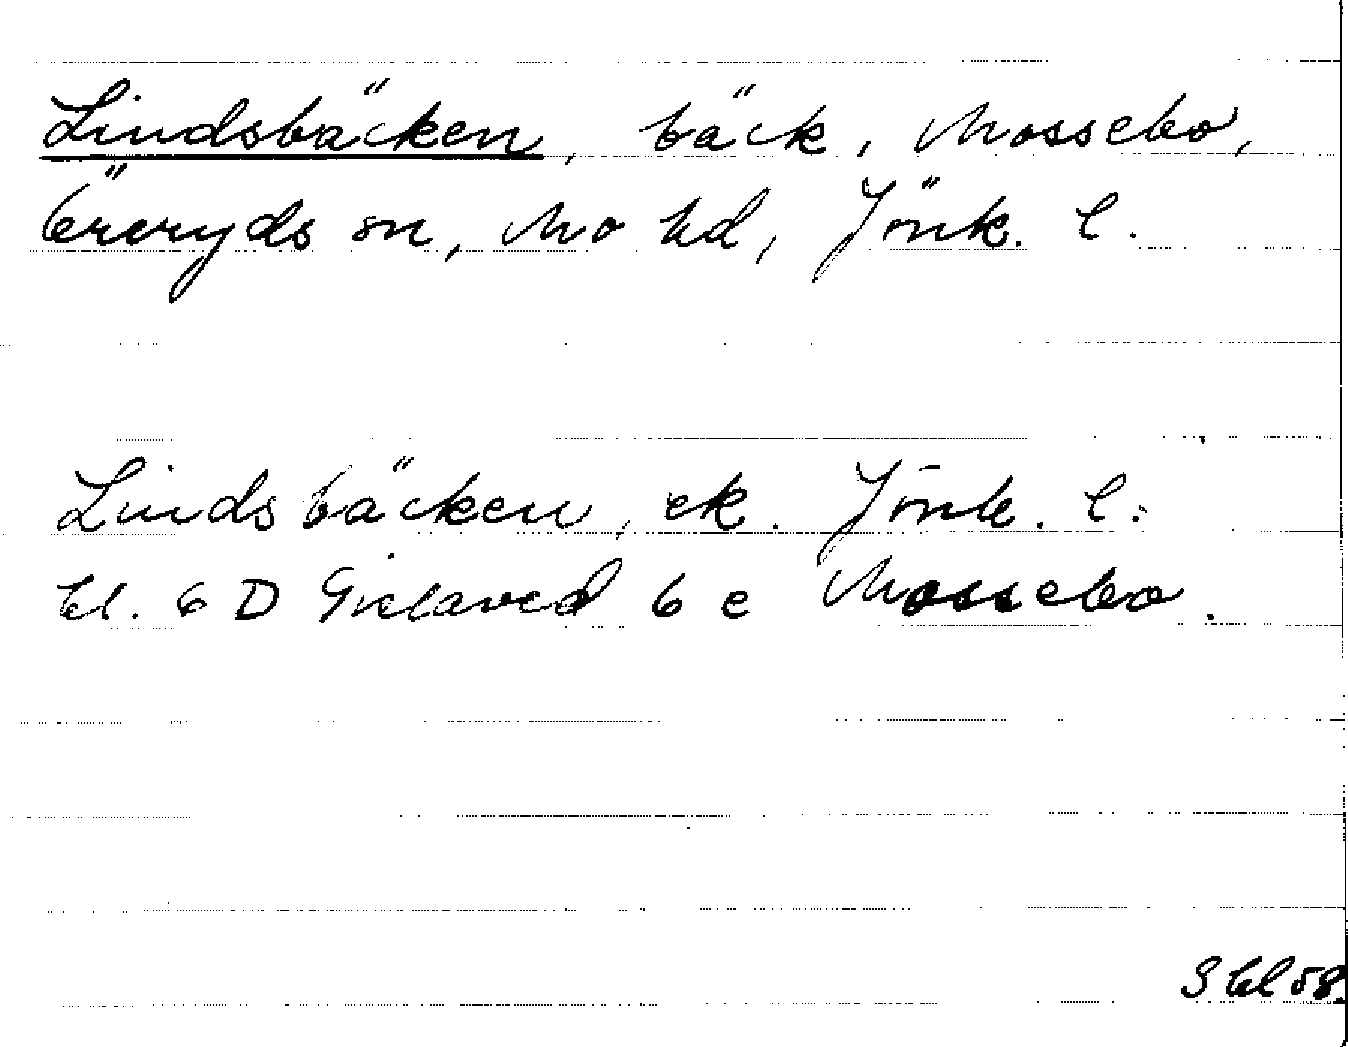 Lindsbäcken, bäck, Mossebo,
Öreryds sn, Mo hd, Jönk. l.
Lindsbäcken, ek. Jönk. l.
bl. 6 D Gislaved 6 e Mossebo.
S bl 58.